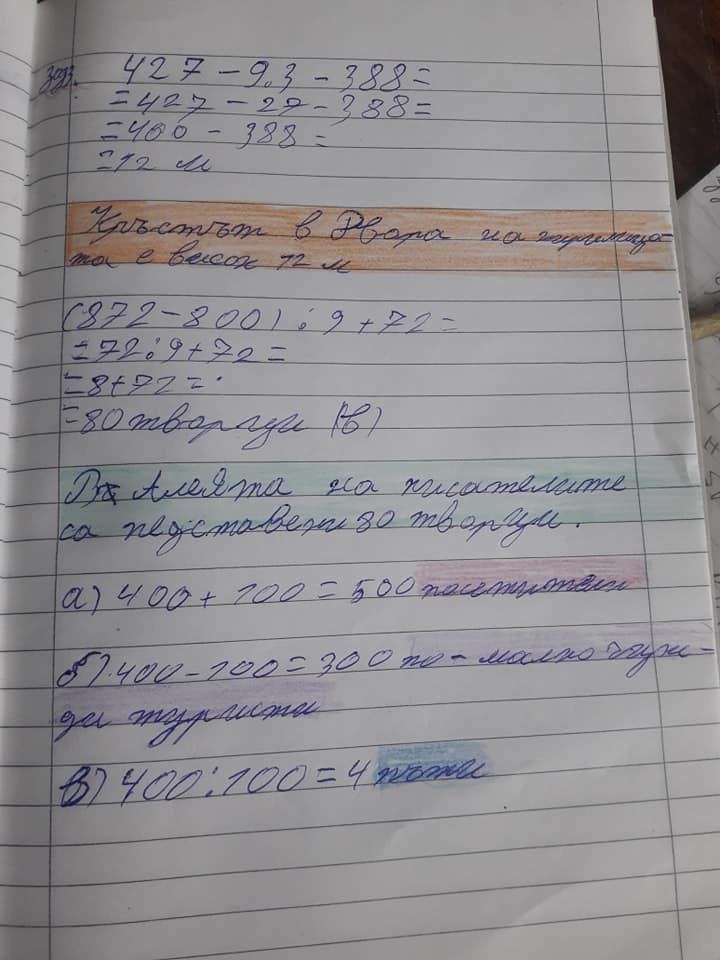 зад3. 427 - 9.3 - 388 =
= 427 - 27 - 388 =
= 400 - 388 =
= 12 м
Кръстът в Двора на кирилица-
та е висок 12 м
(872 - 800) : 9 + 72 =
= 72 : 9 + 72 =
= 8 + 72 =
= 80 творци (в)
В Алеята на писателите
са педставени 80 творци.
а) 400 + 100 = 500 посетители
б) 400 - 100 = 300 по - малко чуж-
ди туристи
в) 400 : 100 = 4 пъти